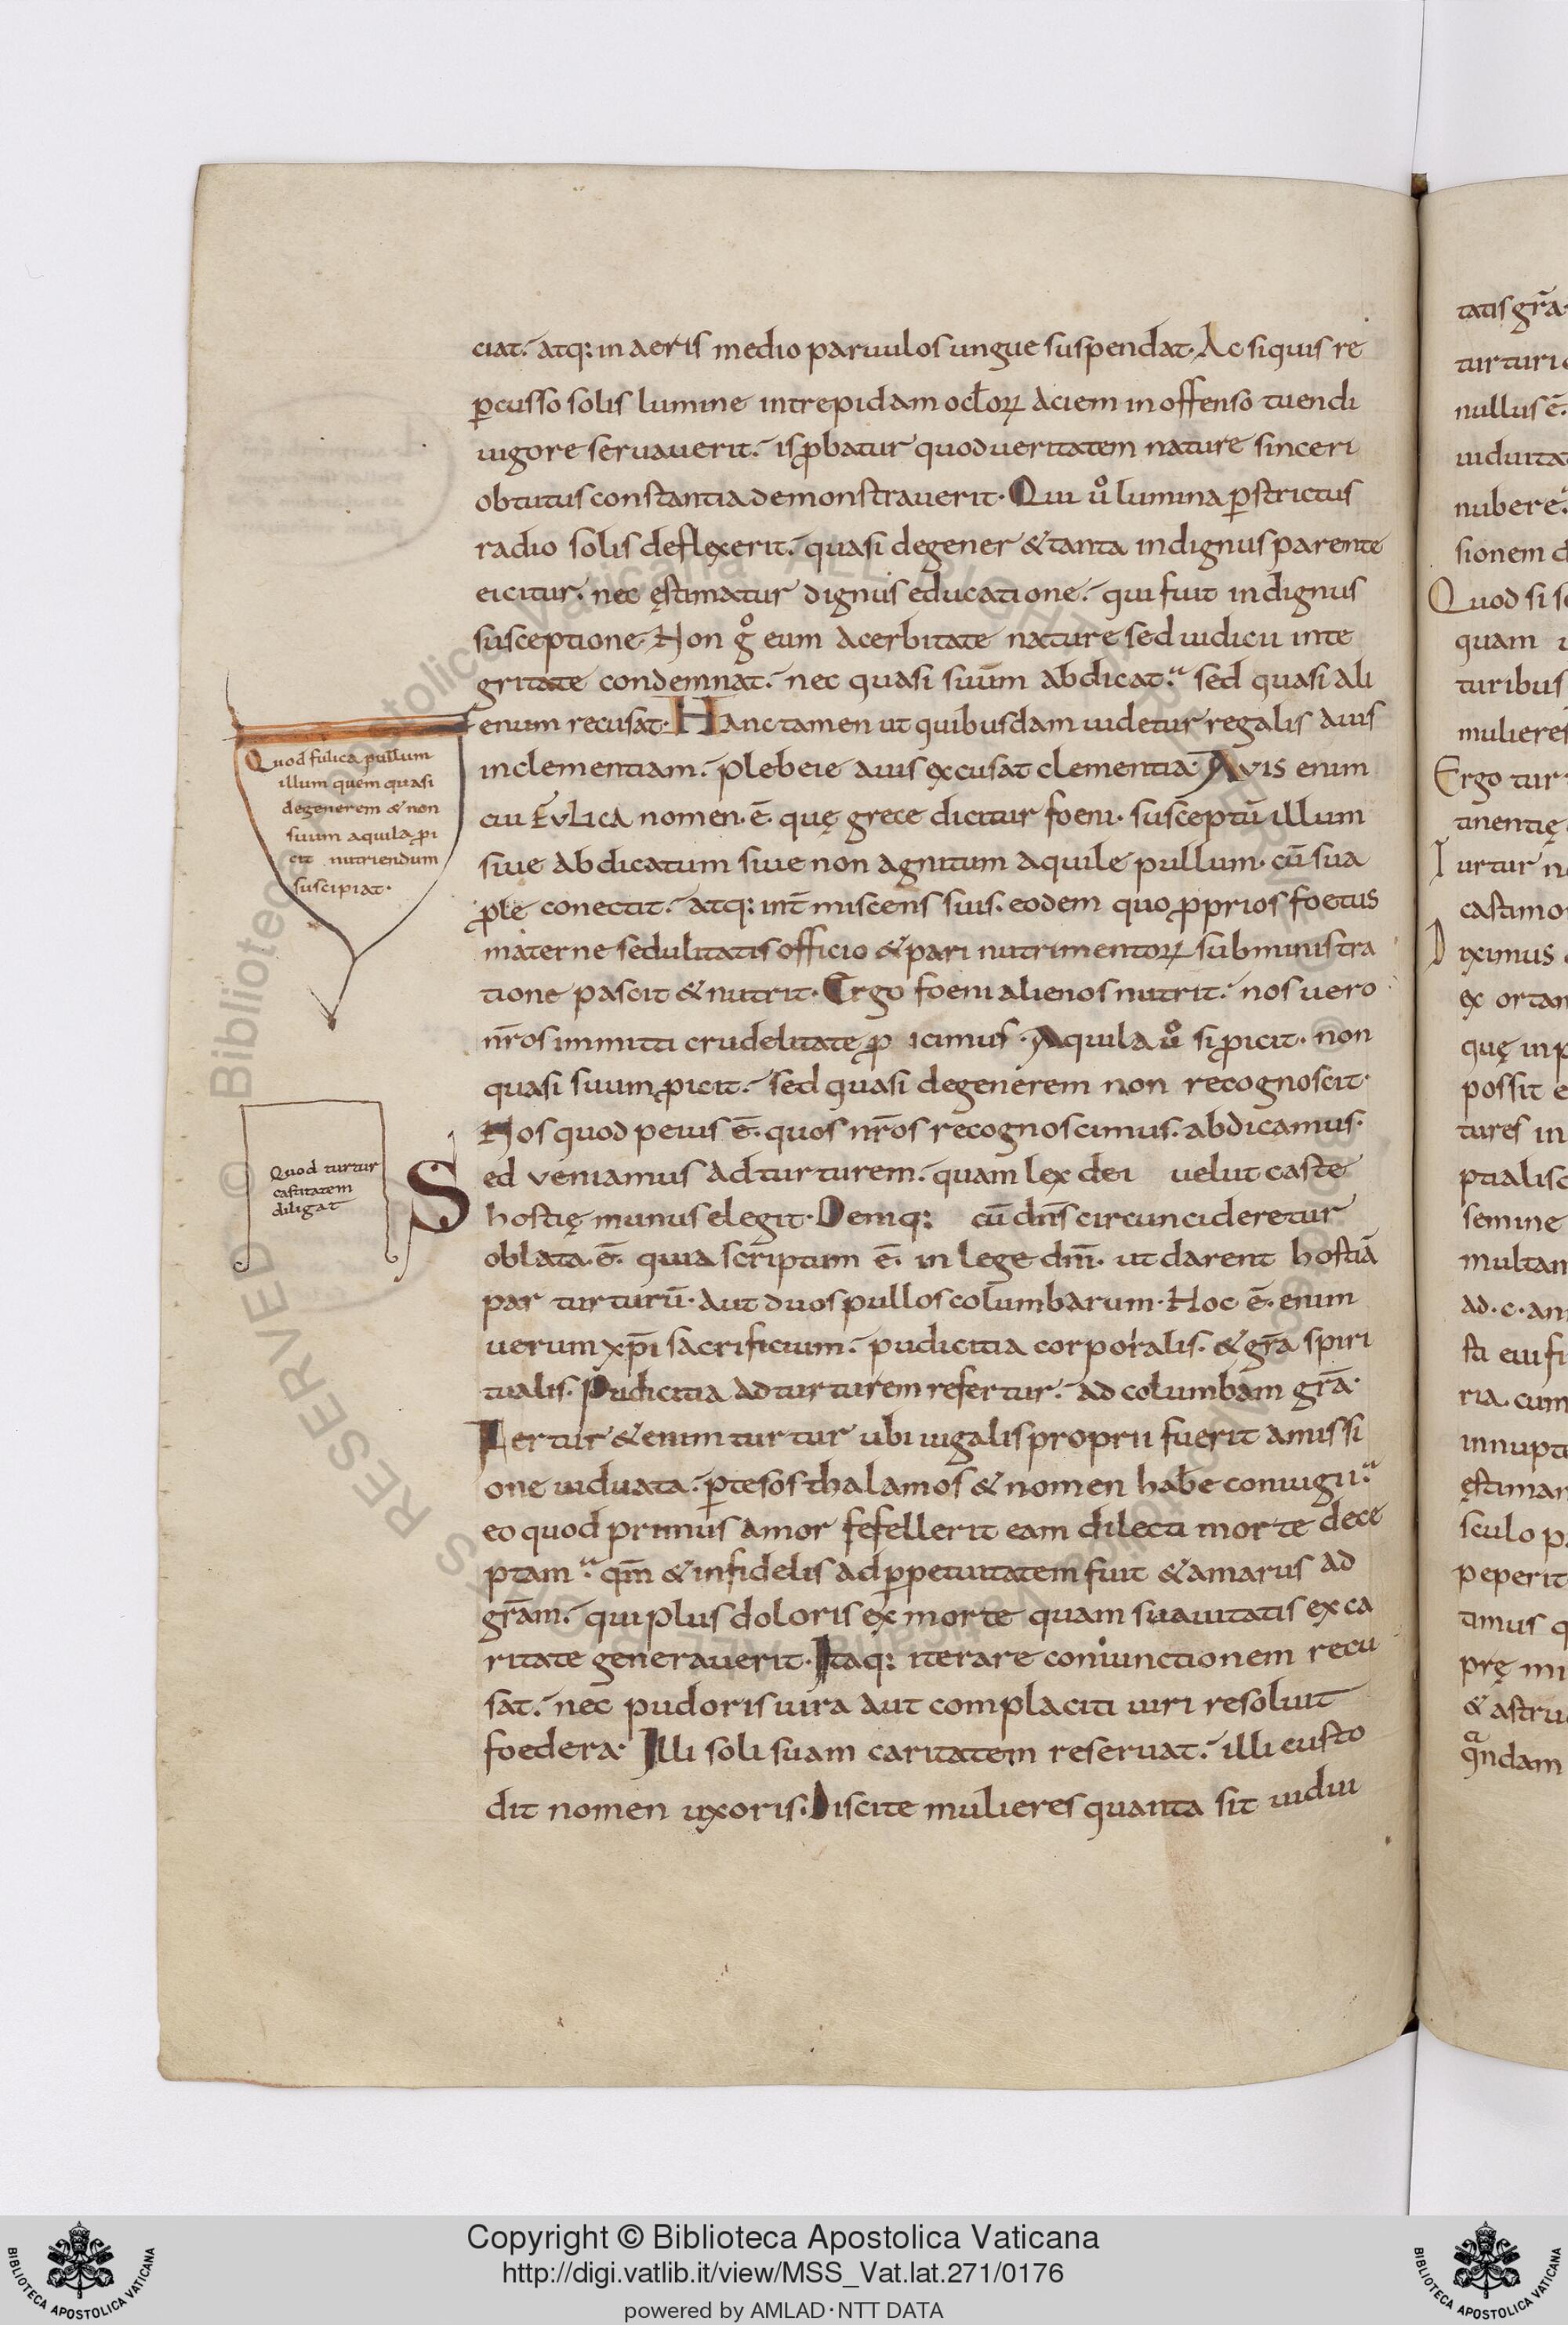 ciat. atq: in aeris medio paruulos ungue suspendat. Ac siquis re
ꝑcusso solis lumine intrepidam oc̄loꝝ aciem inoffenso tuendi
uigore seruauerit. is ꝓbatur quod ueritatem nature sinceri
obtutus constantia demonstrauerit. Qui uͦ lumina ꝑstrictus
radio solis deflexerit. quasi degener & tanta indignus parente
eicitur. nec ęstimatur dignus educatione. qui fuit indignus
susceptione. Non gͦ eum acerbitate nature sed iudicii inte
gritate condemnat. nec quasi suūm abdicat. sed quasi ali
enum recusat. Hanc tamen ut quibusdam uidetur regalis auis
inclementiam. plebeie auis excusat clementia. Avis enim
cui fvlica nomen. ē. quę grece dicitur foeni. susceptū illum
siue abdicatum siue non agnitum aquile pullum. cū sua
ꝓle conectit. atq: int̄ miscens suis. eodem quo ꝓprios foetus
materne sedulitatis officio & pari nutrimentoꝝ subministra
tione pascit & nutrit. Ergo foeni alienos nutrit. nos uero
nr̄os inmiti crudelitate ꝓ icimus. Aquila uͦ si ꝓicit. non
quasi suum ꝓicit. sed quasi degenerem non recognoscit.
Nos quod peius ē. quos nr̄os recognoscimus. abdicamus.
Sed veniamus ad turturem. quam lex dei uelut caste
hostię munus elegit. Deniq: cū dn̄s circuncideretur
oblata. ē. quia scriptum ē. in lege dn̄i. ut darent hostiā
par turturū. aut duos pullos columbarum. Hoc ē. enim
uerum xp̄i sacrificium. pudicitia corporalis. & gr̄a spiri
tualis. Pudicitia ad turturem refertur. ad columbam gr̄a.
Fertur & enim turtur ubi iugalis proprii fuerit amissi
one uiduata. ꝑtesos thalamos & nomen habe coniugii.
eo quod primus amor fefellerit eam dilecti morte dece
ptam. qm̄ & infidelis ad ꝑpetuitatem fuit & amarus ad
gr̄am. qui plus doloris ex morte quam suauitatis ex ca
ritate generauerit. Itaq: iterare coniunctionem recu
sat. nec pudoris iura aut complaciti uiri resoluit
foedera. Illi soli suam caritatem reseruat. illi custo
dit nomen uxoris. Discite mulieres quanta sit uidui
Quod fulica pullum
illum quem quasi
degenerem & non
suum aquila ꝓi
cit nutriendum
suscipiat.
Quod turtur
castitatem
diligat
tatis gr̄a.
turturi
nullus ē.
uiduitat
nubere.
sionem d
Quod si s
quam
turibus
mulieres
Ergo tur
tinentię
Turtur n
castimo
Diximus
ex ortam
quę in p
possit e
tures in
ptialis c
semine
multam
ad. c. an
sti eius fi
ria. cum
innupt
ęstimar
sculo p
peperit
timus q
prę mi
& astru
qndam
Copyright © Biblioteca Apostolica Vaticana
http://digi.vatlib.it/view/MSS_Vat.lat.271/0176
powered by AMLAD·NTT DATA
BIBLIOTECA APOSTOLICA VATICANA
BIBLIOTECA APOSTOLICA VATICANA